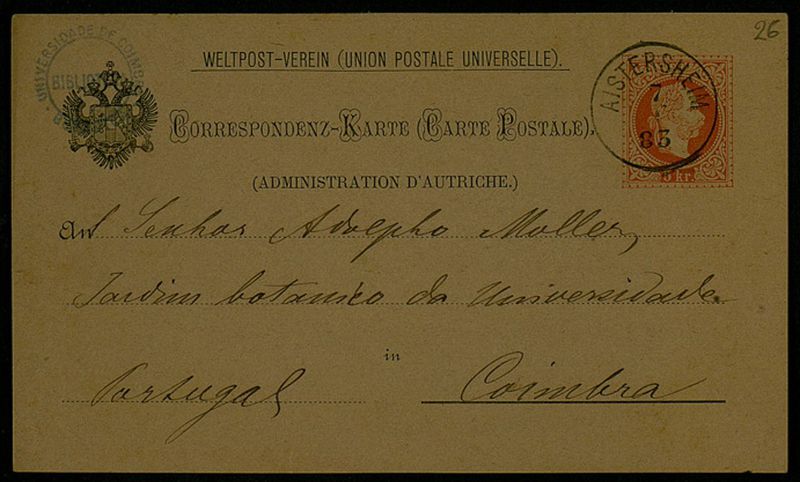 26
UNIVERSIDADE DE COIMBRA
WELTPOST-VEREIN (UNION POSTALE UNIVERSELLE).
AISTERSHEIM
7
83
CORRESPONDENZ-KARTE (CARTE POSTALE).
5 kr.
(ADMINISTRATION D'AUTRICHE.)
An Senhor Adolpho Moller,
Jardim botanico da Universidade
in
Portugal Coimbra